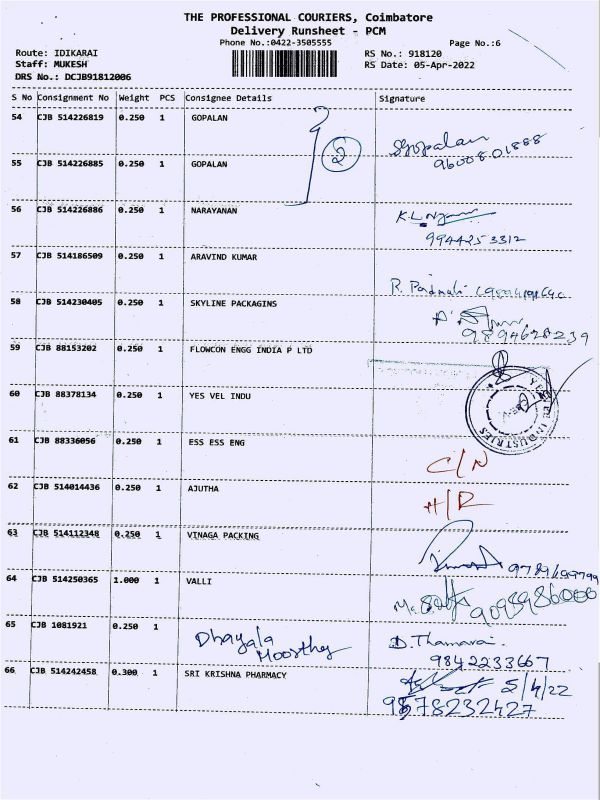 THE PROFESSIONAL COURIERS, Coimbatore
Delivery Runsheet - PCM
Phone No.:0422-3505555
Page No.:6
Route: IDIKARAI
RS No.: 918120
Staff: MUKESH
RS Date: 05-Apr-2022
DRS No.: DCJB91812006
S No Consignment No Weight PCS Consignee Details Signature
54 CJB 514226819 0.250 1 GOPALAN
2
Sgopalan
9600801888
55 CJB 514226885 0.250 1 GOPALAN
56 CJB 514226886 0.250 1 NARAYANAN
K.L
9944253312
57 CJB 514186509 0.250 1 ARAVIND KUMAR
R. Padmali
58 CJB 514230405 0.250 1 SKYLINE PACKAGINS
9894628239
59 CJB 88153202 0.250 1 FLOWCON ENGG INDIA P LTD
60 CJB 88378134 0.250 1 YES VEL INDU
INDUSTRIES
61 CJB 88336056 0.250 1 ESS ESS ENG
C/N
62 CJB 514014436 0.250 1 AJUTHA
H/R
63 CJB 514112348 0.250 1 VINAGA PACKING
64 CJB 514250365 1.000 1 VALLI
65 CJB 1081921 0.250 1
Dhayala
Moorthy
D. Thamarai
9842233667
66 CJB 514242458 0.300 1 SRI KRISHNA PHARMACY
5/4/22
9578232427